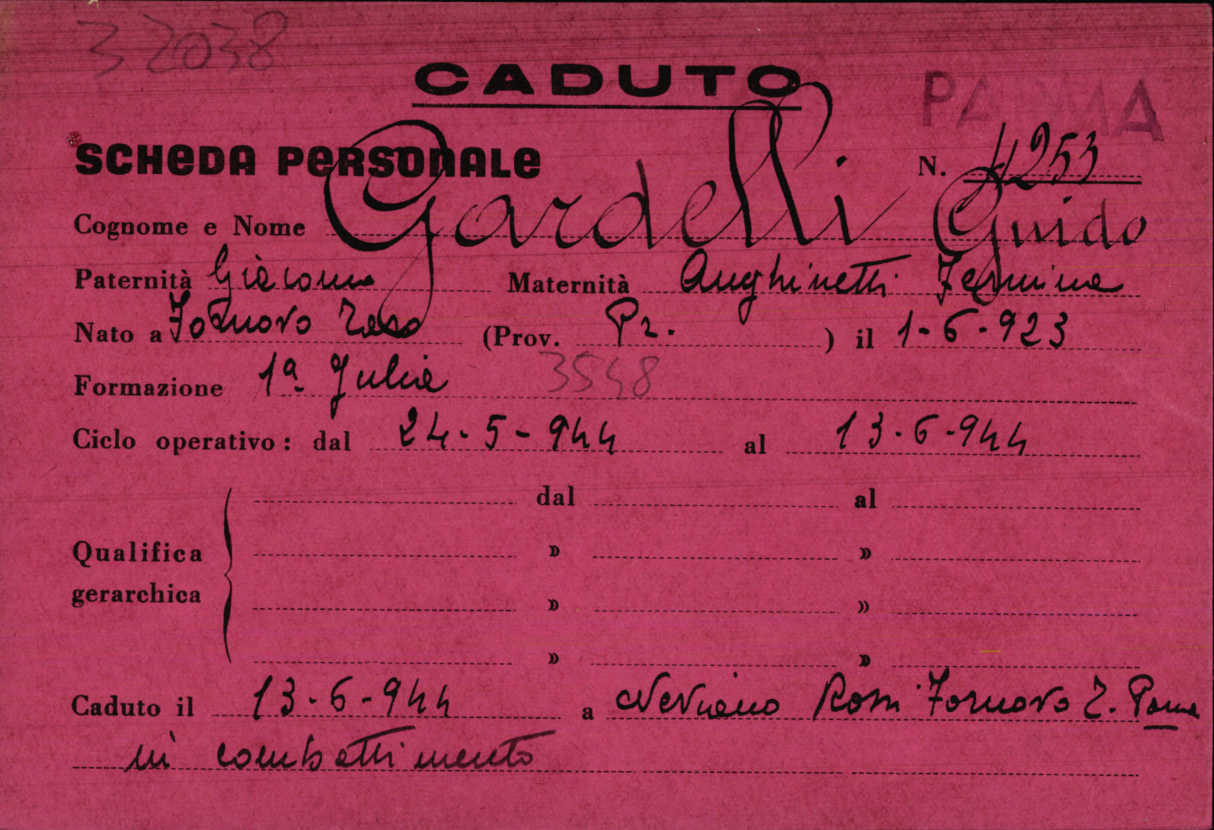 32038
CADUTO
PARMA
SCHEDA PERSONALE N. 4253
Cognome e Nome Gardelli Guido
Paternità Giacomo Maternità Anghinetti Fermina
Nato a Fornovo Taro (Prov. Pr. ) il 1-6-923
Formazione 1ª Julia 3548
Ciclo operativo: dal 24-5-944 al 13-6-944
dal al
Qualifica » »
gerarchica » »
» »
Caduto il 13-6-944 a Neviano Rossi Fornovo T. Parma
in combattimento